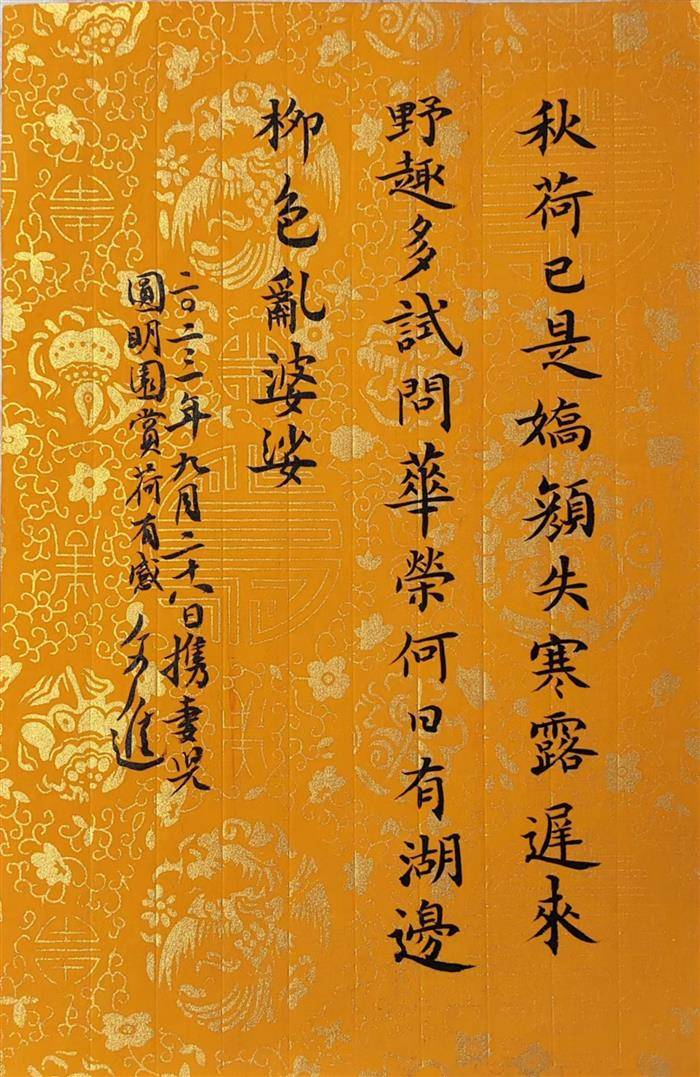 秋荷已是嬌顏失寒露遲來
野趣多試問華榮何日有湖邊
柳色亂婆娑
二〇二三年九月二十八日攜妻兒
圓明園賞荷有感 進